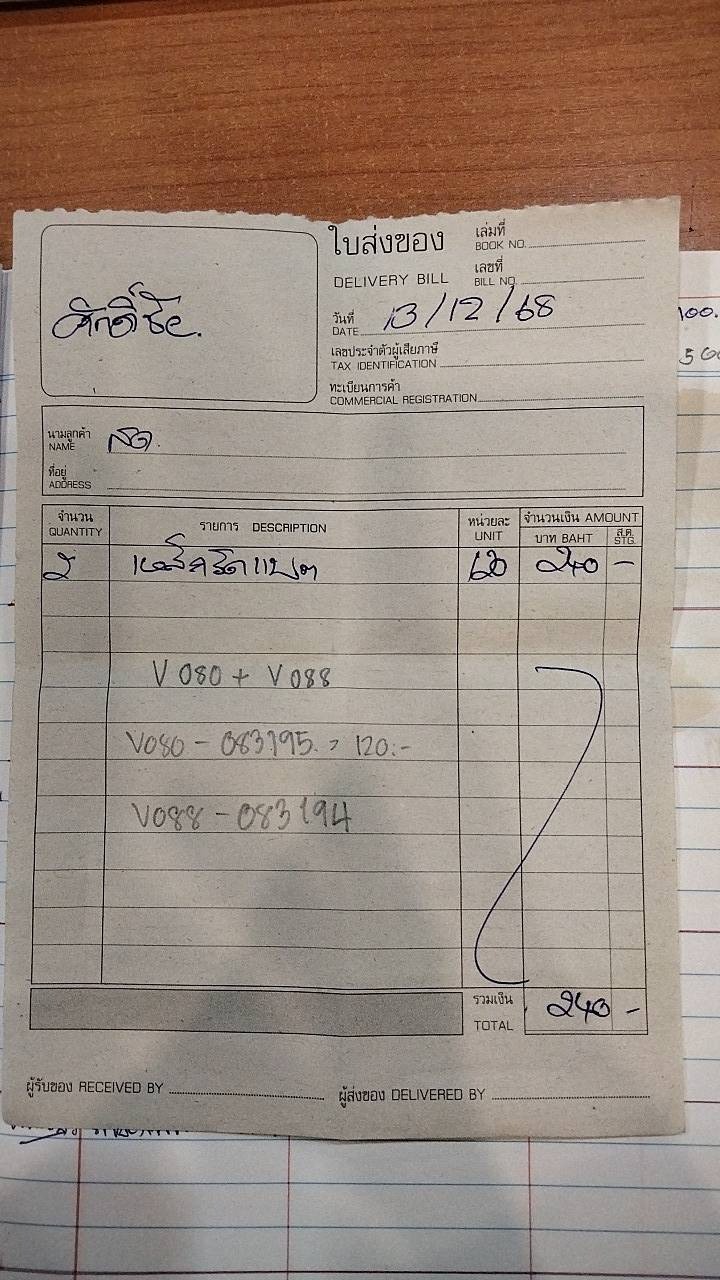 ใบส่งของ
DELIVERY BILL
เล่มที่
BOOK NO.
เลขที่
BILL NO.
ศักดิ์ชัย.
วันที่
DATE 13/12/68
เลขประจำตัวผู้เสียภาษี
TAX IDENTIFICATION
ทะเบียนการค้า
COMMERCIAL REGISTRATION
นามลูกค้า
NAME สด.
ที่อยู่
ADDRESS
จำนวน รายการ DESCRIPTION หน่วยละ จำนวนเงิน AMOUNT
QUANTITY UNIT บาท BAHT ส.ต. STG.
2 240 -
V 080 + V 088
V080 - 083195 = 120.-
V088 - 083194
รวมเงิน
TOTAL 240 -
ผู้รับของ RECEIVED BY ผู้ส่งของ DELIVERED BY